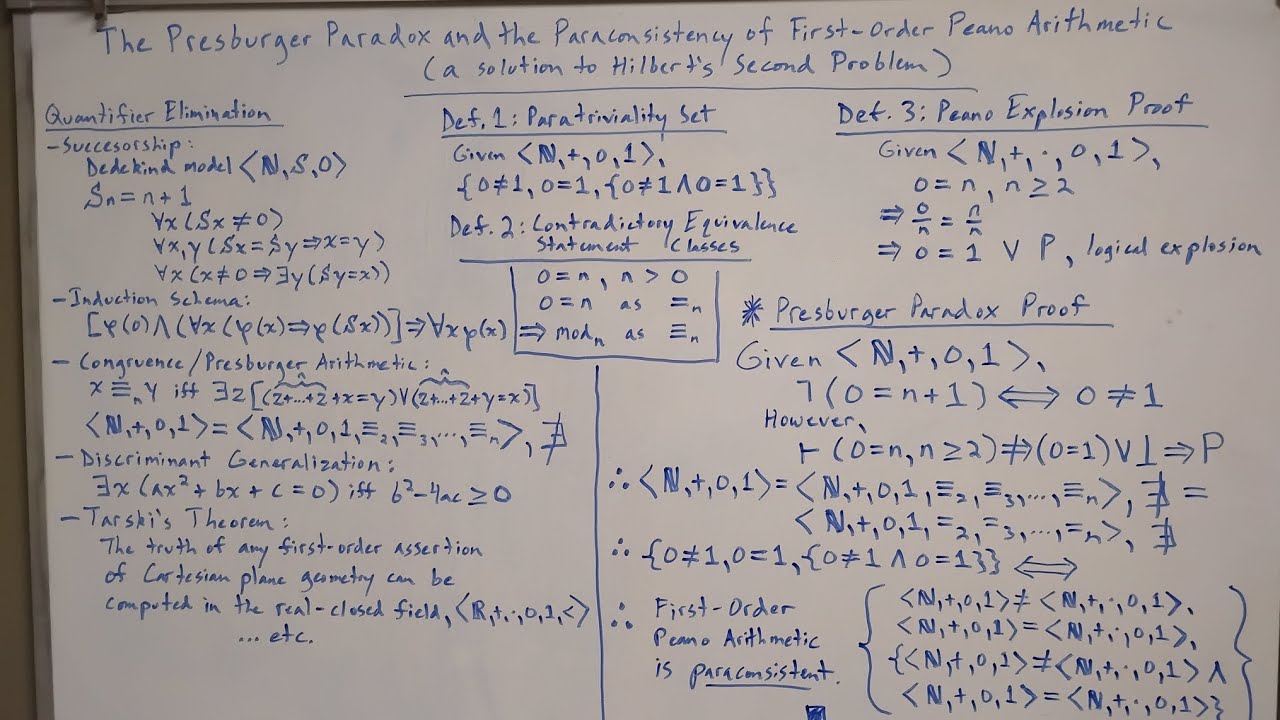 The Presburger Paradox and the Paraconsistency of First-Order Peano Arithmetic
(a solution to Hilbert's Second Problem)
Quantifier Elimination
- Succesorship:
Dedekind model ⟨ℕ, S, 0⟩
Sn = n + 1
∀x (Sx ≠ 0)
∀x,y (Sx = Sy ⇒ x = y)
∀x (x ≠ 0 ⇒ ∃y (Sy = x))
- Induction Schema:
[φ(0) ∧ (∀x (φ(x) ⇒ φ(Sx))] ⇒ ∀x φ(x)
- Congruence/Presburger Arithmetic:
n n
x ≡ₙ y iff ∃z [(z+...+z + x = y) ∨ (z+...+z + y = x)]
⟨ℕ,+,0,1⟩ = ⟨ℕ,+,0,1,≡₂,≡₃,...,≡ₙ⟩, ∄
- Discriminant Generalization:
∃x (ax² + bx + c = 0) iff b² - 4ac ≥ 0
- Tarski's Theorem:
The truth of any first-order assertion
of Cartesian plane geometry can be
computed in the real-closed field, ⟨ℝ,+,·,0,1,<⟩
... etc.
Def. 1: Paratriviality Set
Given ⟨ℕ,+,0,1⟩,
{0≠1, 0=1, {0≠1 ∧ 0=1}}
Def. 2: Contradictory Equivalence
Statement Classes
0 = n, n > 0
0 = n as =ₙ
⇒ modₙ as ≡ₙ
Def. 3: Peano Explosion Proof
Given ⟨ℕ,+,·,0,1⟩,
0 = n, n ≥ 2
⇒ 0/n = n/n
⇒ 0 = 1 ∨ P, logical explosion
* Presburger Paradox Proof
Given ⟨ℕ,+,0,1⟩,
¬(0 = n + 1) ⟺ 0 ≠ 1
However,
⊢ (0=n, n≥2) ⇏ (0=1) ∨ ⊥ ⇒ P
∴ ⟨ℕ,+,0,1⟩ = ⟨ℕ,+,0,1,≡₂,≡₃,...,≡ₙ⟩, ∄ =
⟨ℕ,+,0,1,=₂,=₃,...,=ₙ⟩, ∄
∴ {0≠1, 0=1, {0≠1 ∧ 0=1}} ⟺
∴ First-Order
Peano Arithmetic
is paraconsistent.
{⟨ℕ,+,0,1⟩ ≠ ⟨ℕ,+,·,0,1⟩,
⟨ℕ,+,0,1⟩ = ⟨ℕ,+,·,0,1⟩,
{⟨ℕ,+,0,1⟩ ≠ ⟨ℕ,+,·,0,1⟩ ∧
⟨ℕ,+,0,1⟩ = ⟨ℕ,+,·,0,1⟩}}
■